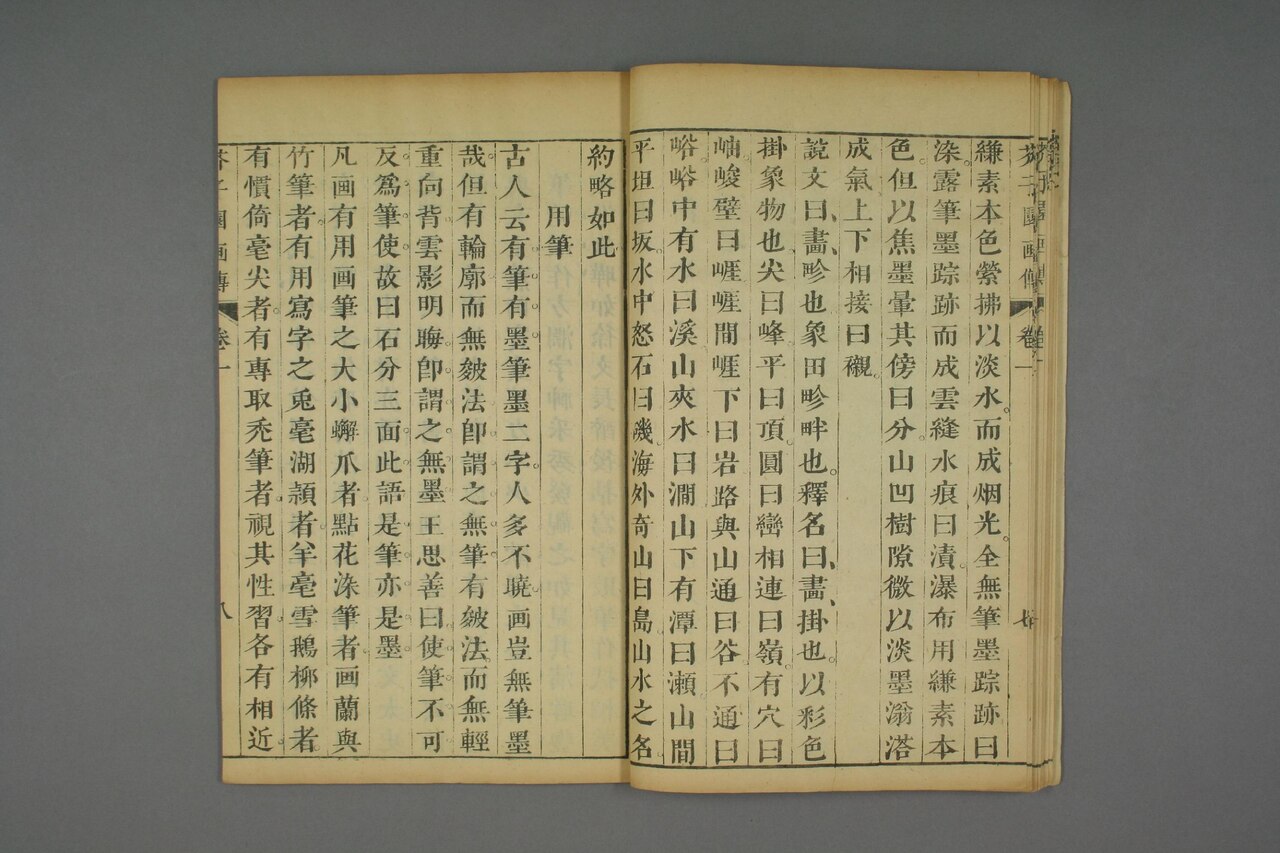 縑素本色縈拂以淡水而成烟光全無筆墨踪跡曰
染露筆墨踪跡而成雲縫水痕曰漬瀑布用縑素本
色但以焦墨暈其傍曰分山凹樹隙微以淡墨滃溚
成氣上下相接曰襯
說文曰畫畛也象田畛畔也釋名曰畫掛也以彩色
掛象物也尖曰峰平曰頂圓曰巒相連曰嶺有穴曰
岫峻壁曰崕崕間崕下曰岩路與山通曰谷不通曰
峪峪中有水曰溪山夾水曰澗山下有潭曰瀨山間
平坦曰坂水中怒石曰磯海外奇山曰島山水之名
約略如此
用筆
古人云有筆有墨筆墨二字人多不曉画豈無筆墨
哉但有輪廓而無皴法卽謂之無筆有皴法而無輕
重向背雲影明晦卽謂之無墨王思善曰使筆不可
反爲筆使故曰石分三面此語是筆亦是墨
凡画有用画筆之大小蠏爪者點花染筆者画蘭與
竹筆者有用寫字之兎毫湖頴者羊毫雪鵝柳條者
有慣倚毫尖者有專取禿筆者視其性習各有相近
芥子園画傳 卷一 八